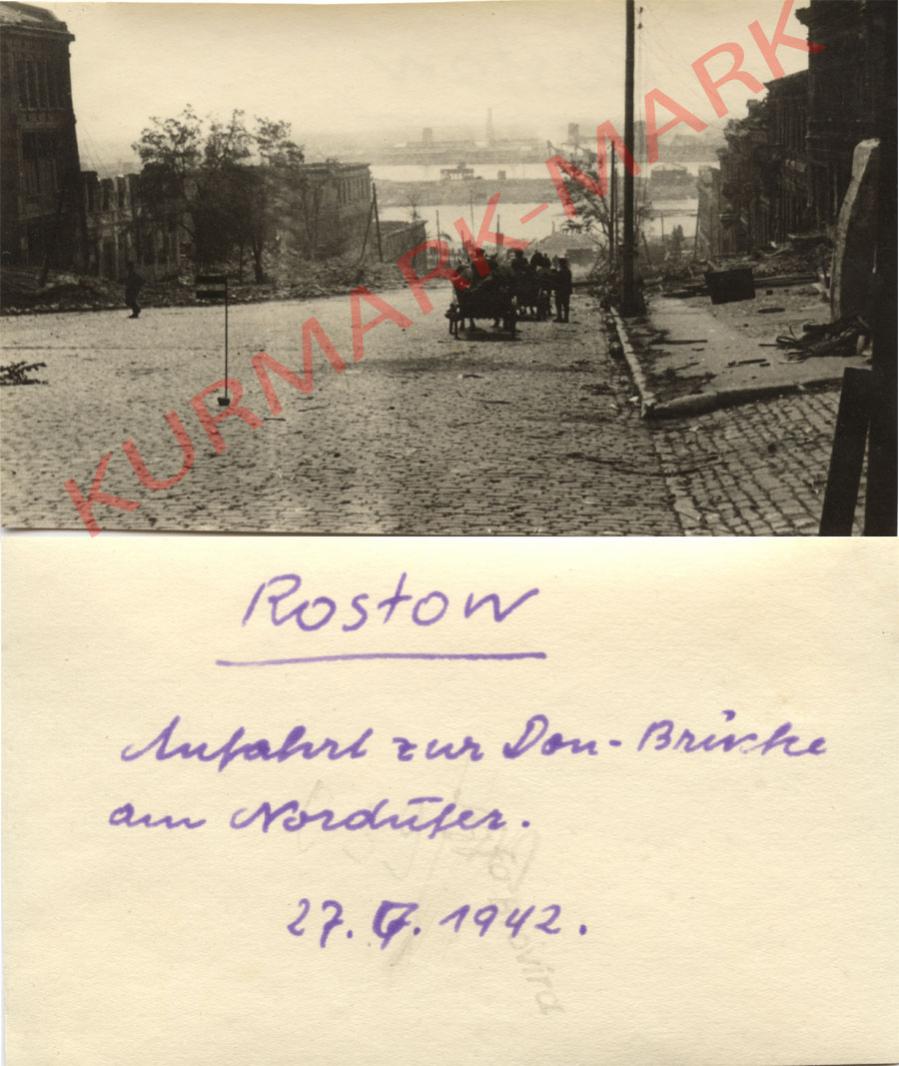 KURMARK-MARK
Rostow
Anfahrt zur Don-Brücke
am Nordufer.
27. 7. 1942.